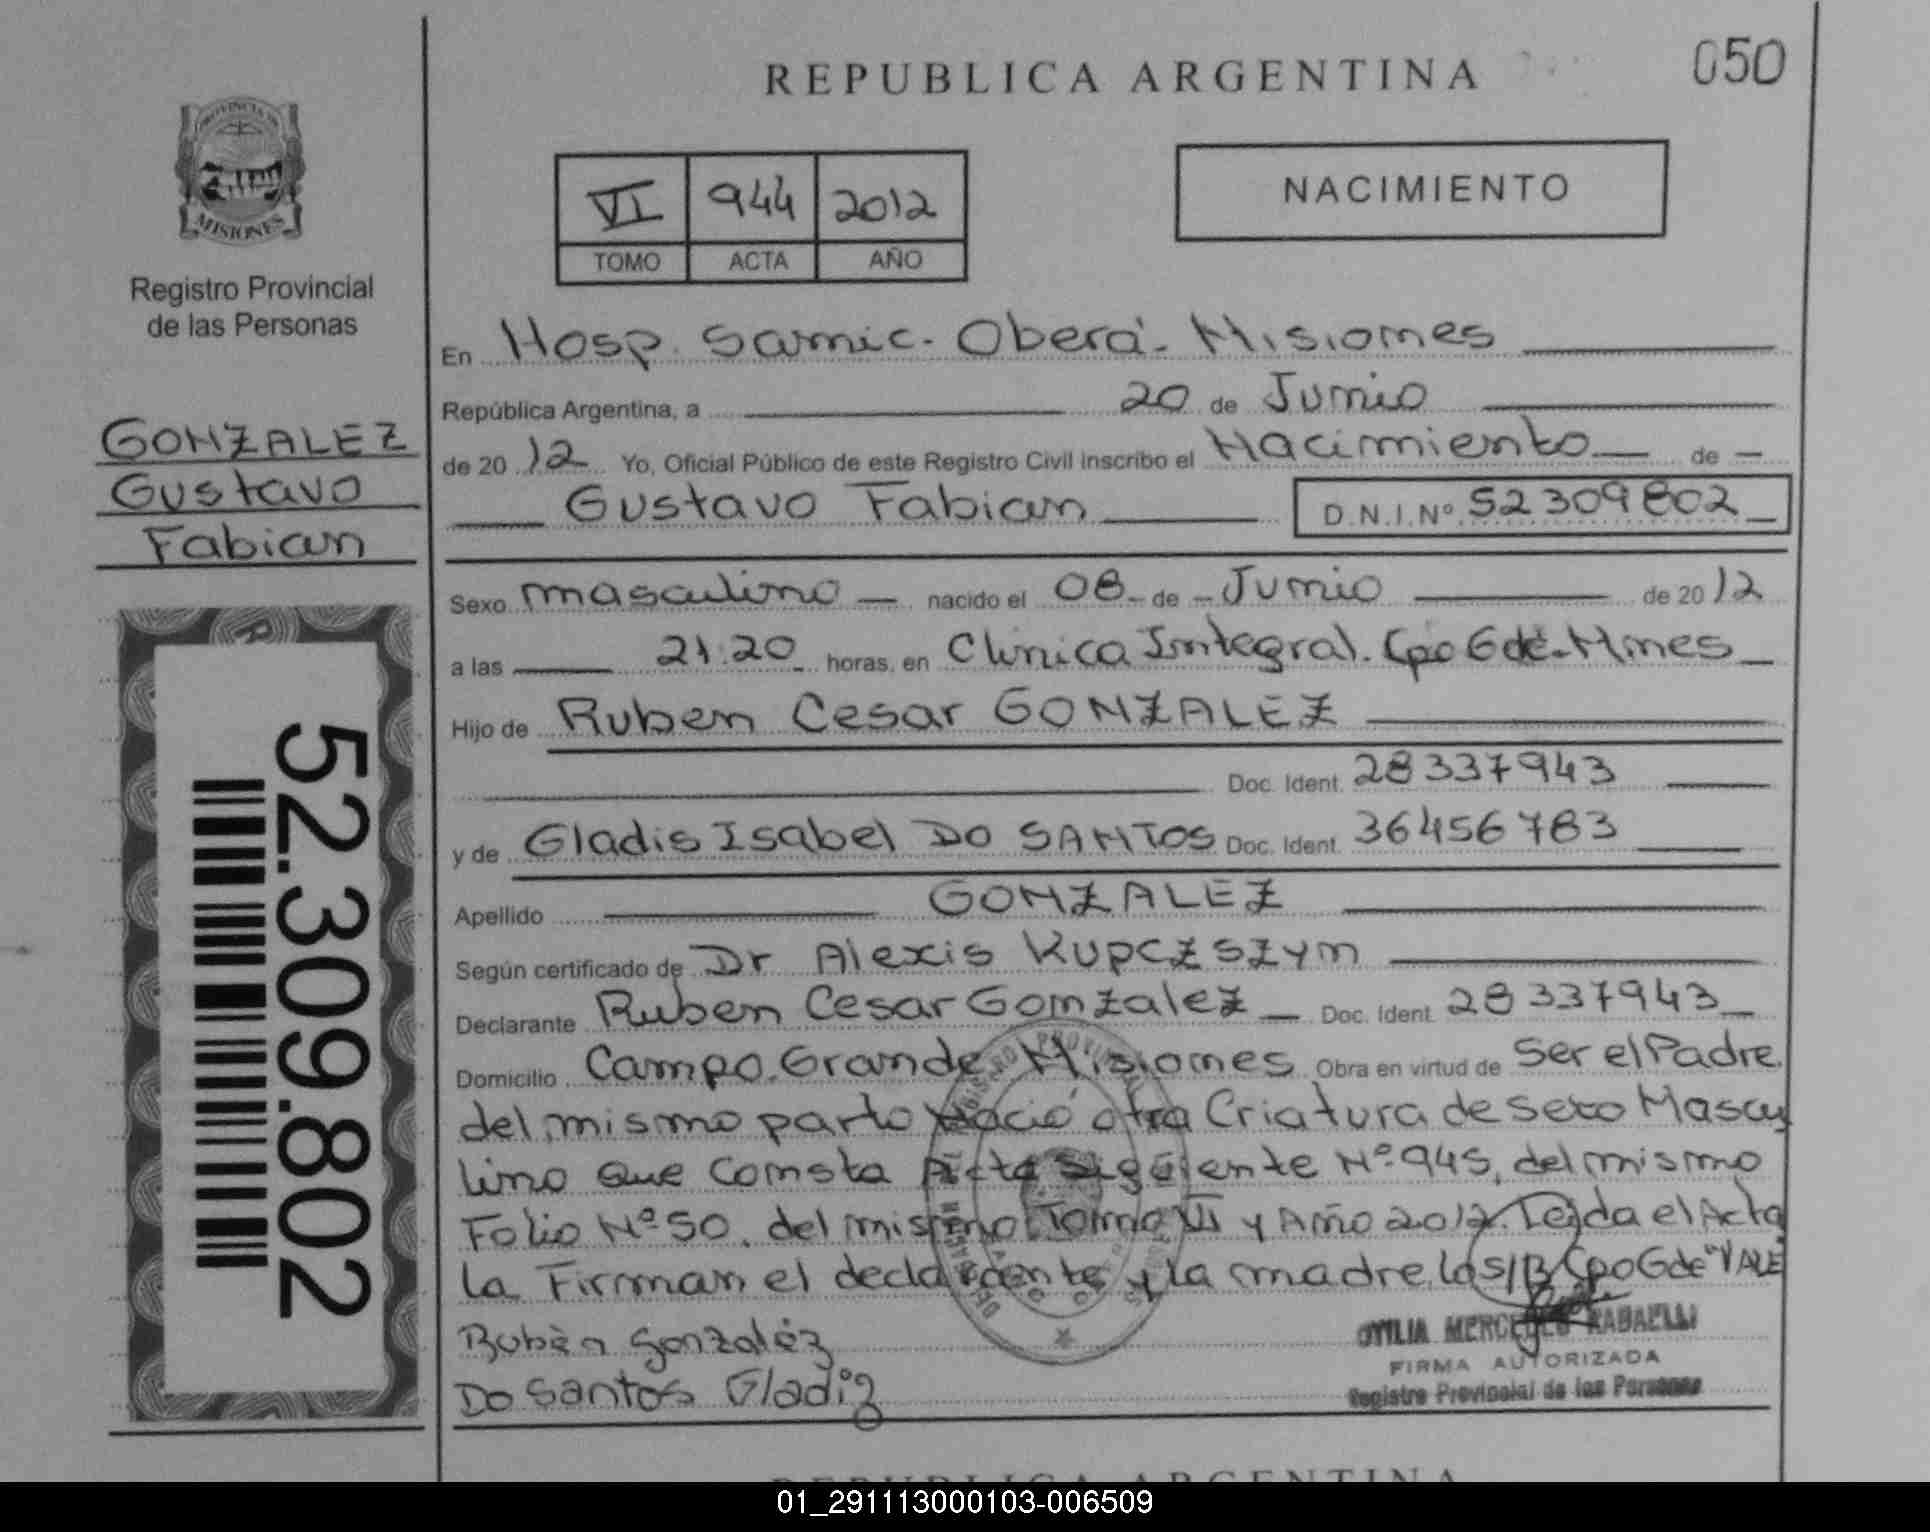 REPUBLICA ARGENTINA
050
PROVINCIA DE
MISIONES
Registro Provincial
de las Personas
GONZALEZ
Gustavo
Fabian
52.309.802
VI 944 2012
TOMO ACTA AÑO
NACIMIENTO
En Hosp. Samic. Oberá. Misiones
República Argentina, a 20 de Junio
de 2012 Yo, Oficial Público de este Registro Civil inscribo el Nacimiento de
Gustavo Fabian D.N.I.Nº 52309802
Sexo masculino nacido el 08 de Junio de 2012
a las 21:20 horas, en Clinica Integral. Cpo Gde. Mnes
Hijo de Ruben Cesar GONZALEZ
Doc. Ident. 28337943
y de Gladis Isabel DO SANTOS Doc. Ident. 36456783
Apellido GONZALEZ
Según certificado de Dr Alexis Kupczszyn
Declarante Ruben Cesar Gonzalez Doc. Ident. 28337943
Domicilio Campo Grande Misiones Obra en virtud de Ser el Padre.
del mismo parto Nació otra Criatura de sexo Mascu
lino Que Consta Acta Siguiente Nº 945, del mismo
Folio Nº 50. del mismo Tomo VI y Año 2012. Leida el Acta
La Firman el declarante y la madre, los/B Cpo Gde "VALE
Rubèn Gonzaléz
Do Santos Gladiz
OTILIA MERCEDES RABAELLI
FIRMA AUTORIZADA
Registro Provincial de las Personas
REPUBLICA ARGENTINA
01_291113000103-006509